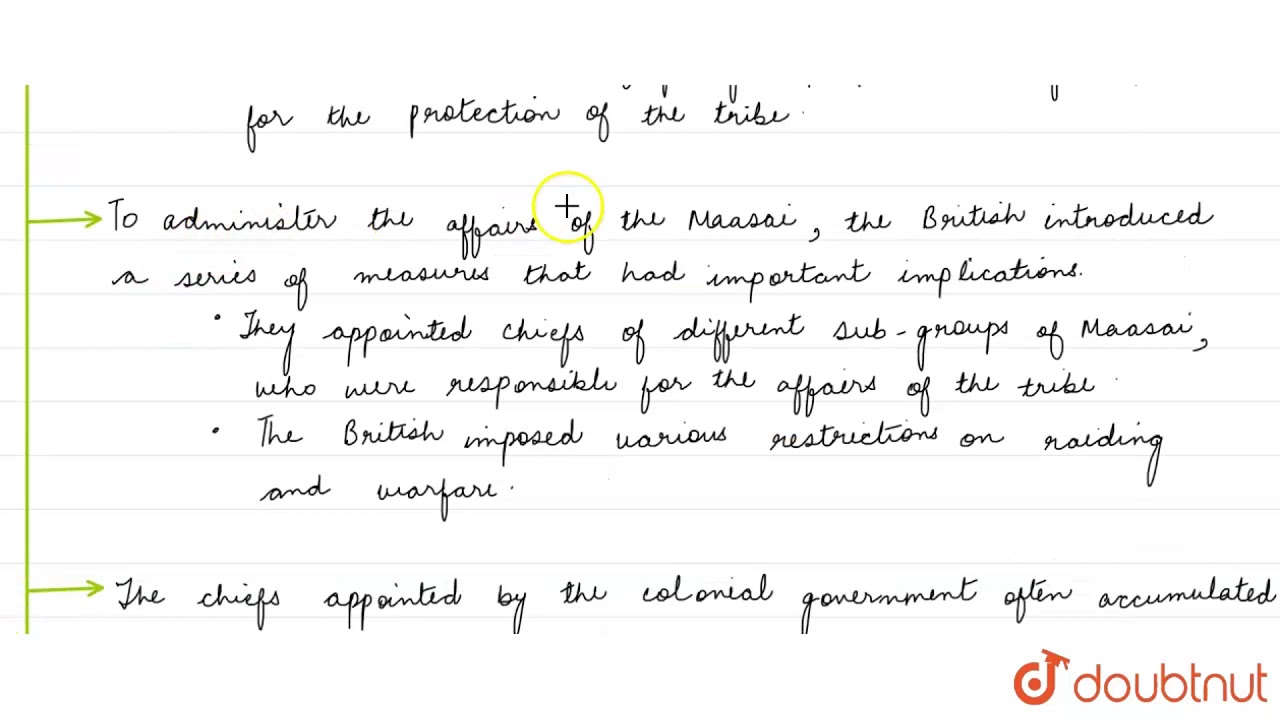 for the protection of the tribe.
To administer the affairs of the Maasai, the British introduced
a series of measures that had important implications.
• They appointed chiefs of different sub-groups of Maasai,
who were responsible for the affairs of the tribe.
• The British imposed various restrictions on raiding
and warfare.
The chiefs appointed by the colonial government often accumulated
doubtnut